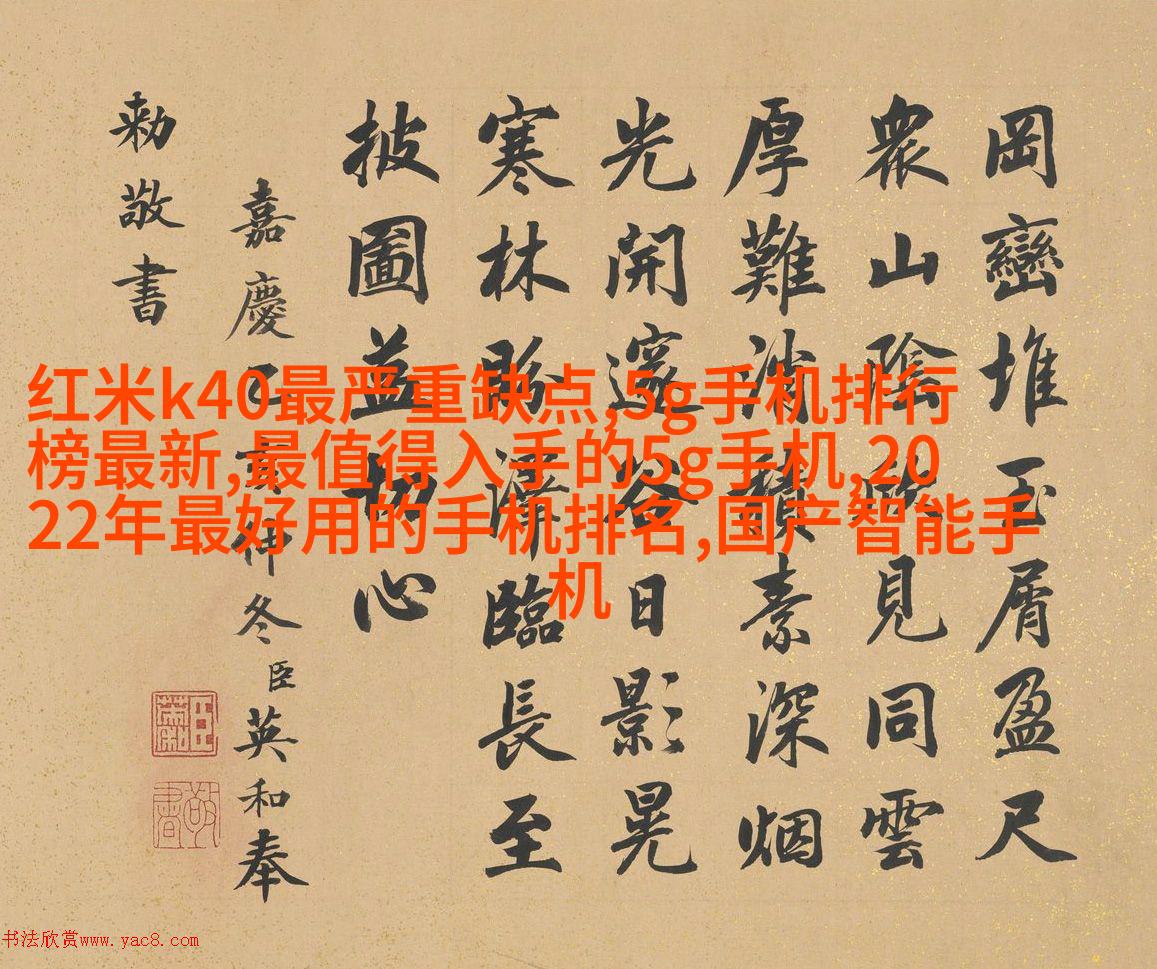 岡巒堆玉屑盈尺
衆山陰見同雲
厚難消積素深烟
光開邃谷日影晃
寒林盼澤臨長至
披圖益切心
嘉慶乙亥仲冬臣英和奉
勅敬書
红米k40最严重缺点,5g手机排行
榜最新,最值得入手的5g手机,20
22年最好用的手机排名,国产智能手
机
敬書
书法欣赏www.yac8.com